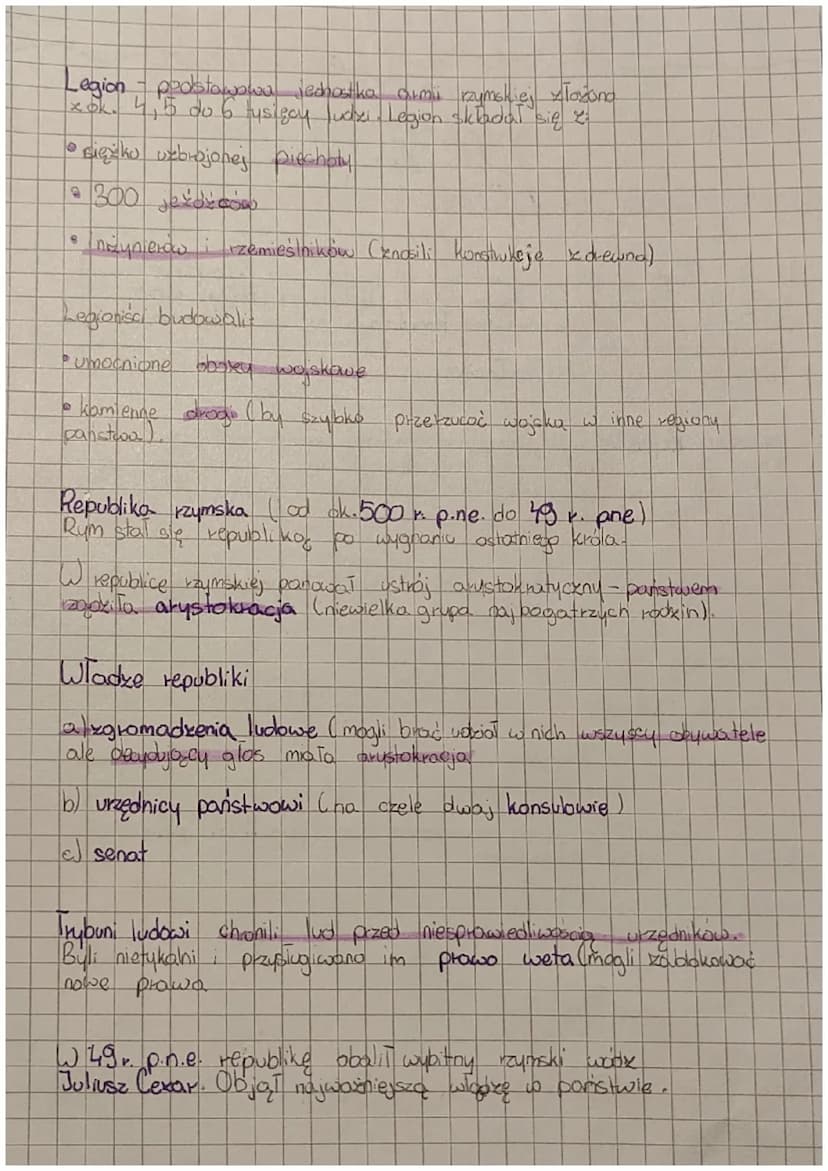 Legion - podstawowa jednostka armii rzymskiej złożona
z ok. 4,5 do 6 tysięcy ludzi. Legion składał się z:
• ciężko uzbrojonej piechoty
• 300 jeźdźców
• inżynierów i rzemieślników (znosili konstrukcje z drewna)
Legioniści budowali:
• umocnione obozy wojskowe
• kamienne drogi (by szybko przerzucać wojska w inne regiony
państwa).
Republika rzymska (od ok. 500 r. p.n.e. do 49 r. pne)
Rzym stał się republiką po wygnaniu ostatniego króla.
W republice rzymskiej panował ustrój arystokratyczny - państwem
rządziła arystokracja (niewielka grupa najbogatrzych rodzin).
Władze republiki
a) zgromadzenia ludowe (mogli brać udział w nich wszyscy obywatele
ale decydujący głos miała arystokracja
b) urzędnicy państwowi (na czele dwaj konsulowie)
c) senat
Trybuni ludowi chronili lud przed niesprawiedliwością urzędników.
Byli nietykalni i przysługiwano im prawo weta (mogli zablokować
nowe prawa
W 49 r. p.n.e. republikę obalił wybitny rzymski wódz
Juliusz Cezar. Objął najważniejszą władzę w państwie.